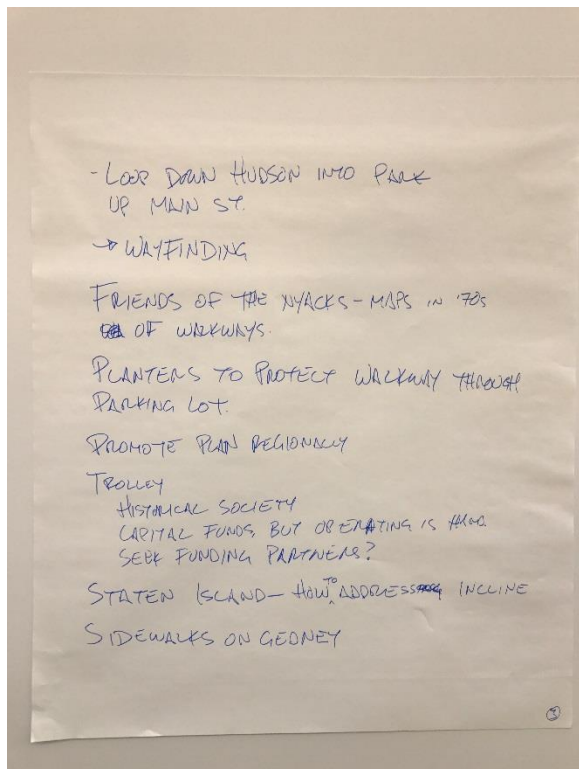 - LOOP DOWN HUDSON INTO PARK
UP MAIN ST.
→ WAYFINDING
FRIENDS OF THE NYACKS - MAPS IN '70s
OF WALKWAYS.
PLANTERS TO PROTECT WALKWAY THROUGH
PARKING LOT.
PROMOTE PLAN REGIONALLY
TROLLEY
HISTORICAL SOCIETY
CAPITAL FUNDS, BUT OPERATING IS HARD.
SEEK FUNDING PARTNERS?
STATEN ISLAND - HOW TO ADDRESS INCLINE
SIDEWALKS ON GEDNEY
3